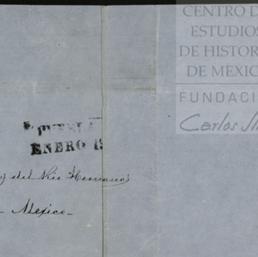 CENTRO D
ESTUDIOS
DE HISTOR
DE MEXIC
FUNDACI
Carlos Sl
ENERO 1
del Rio Hermanos
Mexico